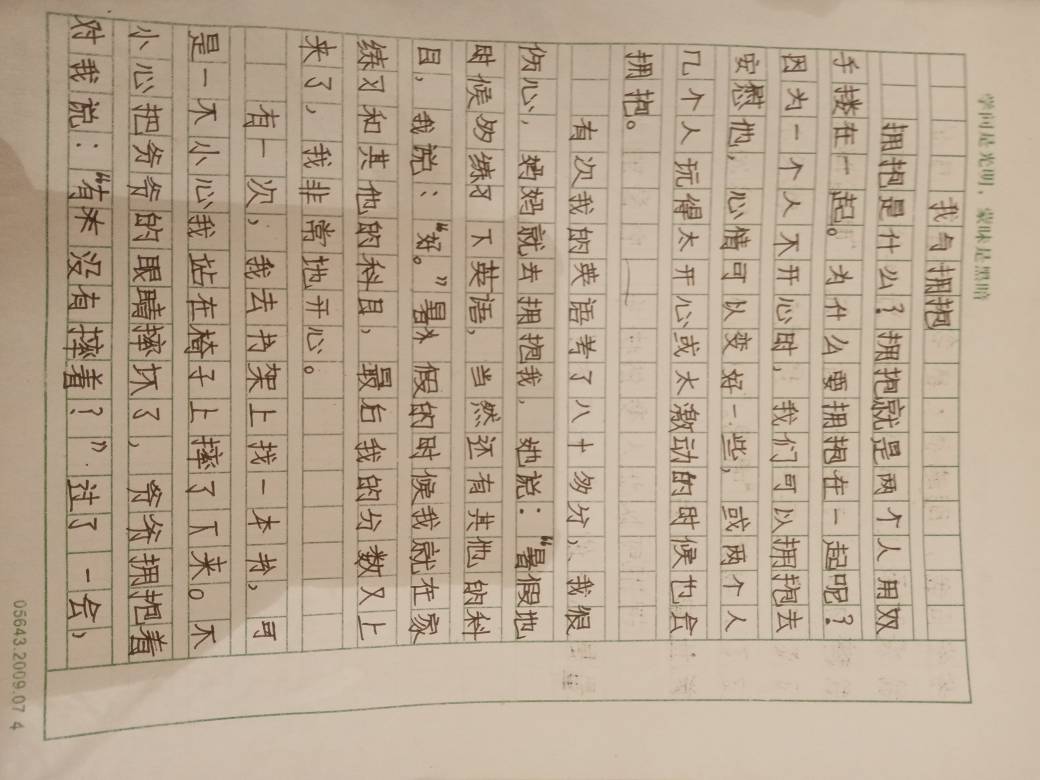 学问是光明，蒙昧是黑暗
我与拥抱
拥抱是什么？拥抱就是两个人用双
手搂在一起。为什么要拥抱在一起呢？
因为一个人不开心时，我们可以拥抱去
安慰他，心情可以变好一些，或两个人
几个人玩得太开心或太激动的时候也会
拥抱。
有次我的英语考了八十多分，我很
伤心，妈妈就去拥抱我，她说：“暑假地
时候多练习下英语，当然还有其他的科
目，我说：“好。”暑假的时候我就在家
练习和其他的科目，最后我的分数又上
来了，我非常地开心。
有一次，我去书架上找一本书，可
是一不小心我站在椅子上摔了下来。不
小心把爷爷的眼睛摔坏了，爷爷拥抱着
对我说：“有木没有摔着？”过了一会，
05643.2009.07 4